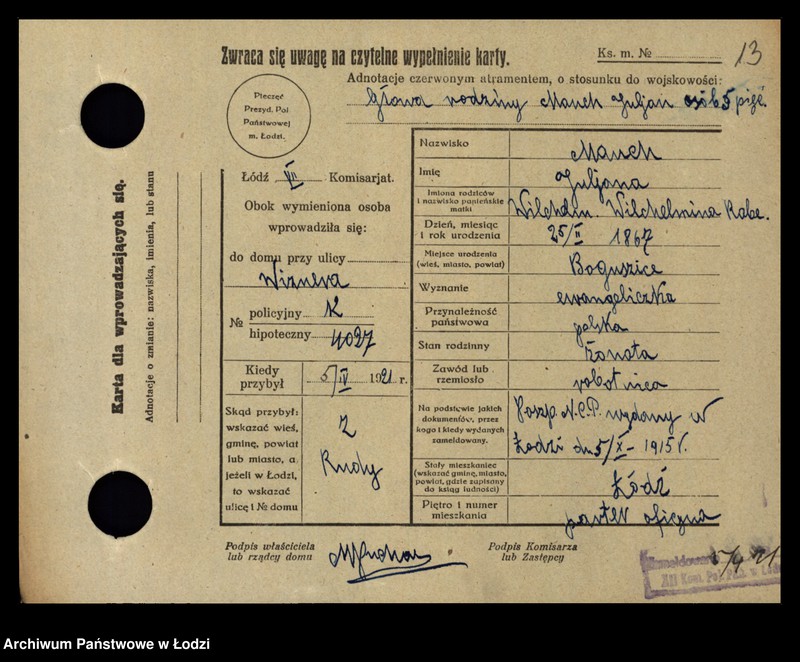 Zwraca się uwagę na czytelne wypełnienie karty.
Ks. m. №
13
Adnotacje czerwonym atramentem, o stosunku do wojskowości:
Głowa rodziny Manch Juljan osób 5 pięć.
Karta dla wprowadzających się.
Adnotacje o zmianie: nazwiska, imienia, lub stanu
Pieczęć
Prezyd. Pol
Państwowej
m. Łodzi.
Łódź VII Komisarjat.
Obok wymieniona osoba
wprowadziła się:
do domu przy ulicy
Wiznera
№
policyjny 12
hipoteczny 4027
Kiedy
przybył
5/IV 1921 r.
Skąd przybył:
wskazać wieś,
gminę, powiat
lub miasto, a
jeżeli w Łodzi,
to wskazać
ulicę i № domu
Z
Rudy
Nazwisko
Manch
Imię
Juljana
Imiona rodziców
i nazwisko panieńskie
matki
Wilchelmina Rabe.
Dzień, miesiąc
i rok urodzenia
25/II 1867
Miejsce urodzenia
(wieś, miasto, powiat)
Boguszice
Wyznanie
ewangeliczka
Przynależność
państwowa
polska
Stan rodzinny
Żonata
Zawód lub
rzemiosło
robotnica
Na podstawie jakich
dokumentów, przez
kogo i kiedy wydanych
zameldowany.
Paszp. N.C.P. wydany w
Łodzi dn 5/X - 1915 r.
Stały mieszkaniec
(wskazać gminę, miasto,
powiat, gdzie zapisany
do ksiąg ludności)
Łódź
Piętro i numer
mieszkania
parter oficyna
Podpis właściciela
lub rządcy domu
Podpis Komisarza
lub Zastępcy
Zameldowano 5/4 21
XII Kom. Pol. Pań. w Łodzi
Archiwum Państwowe w Łodzi